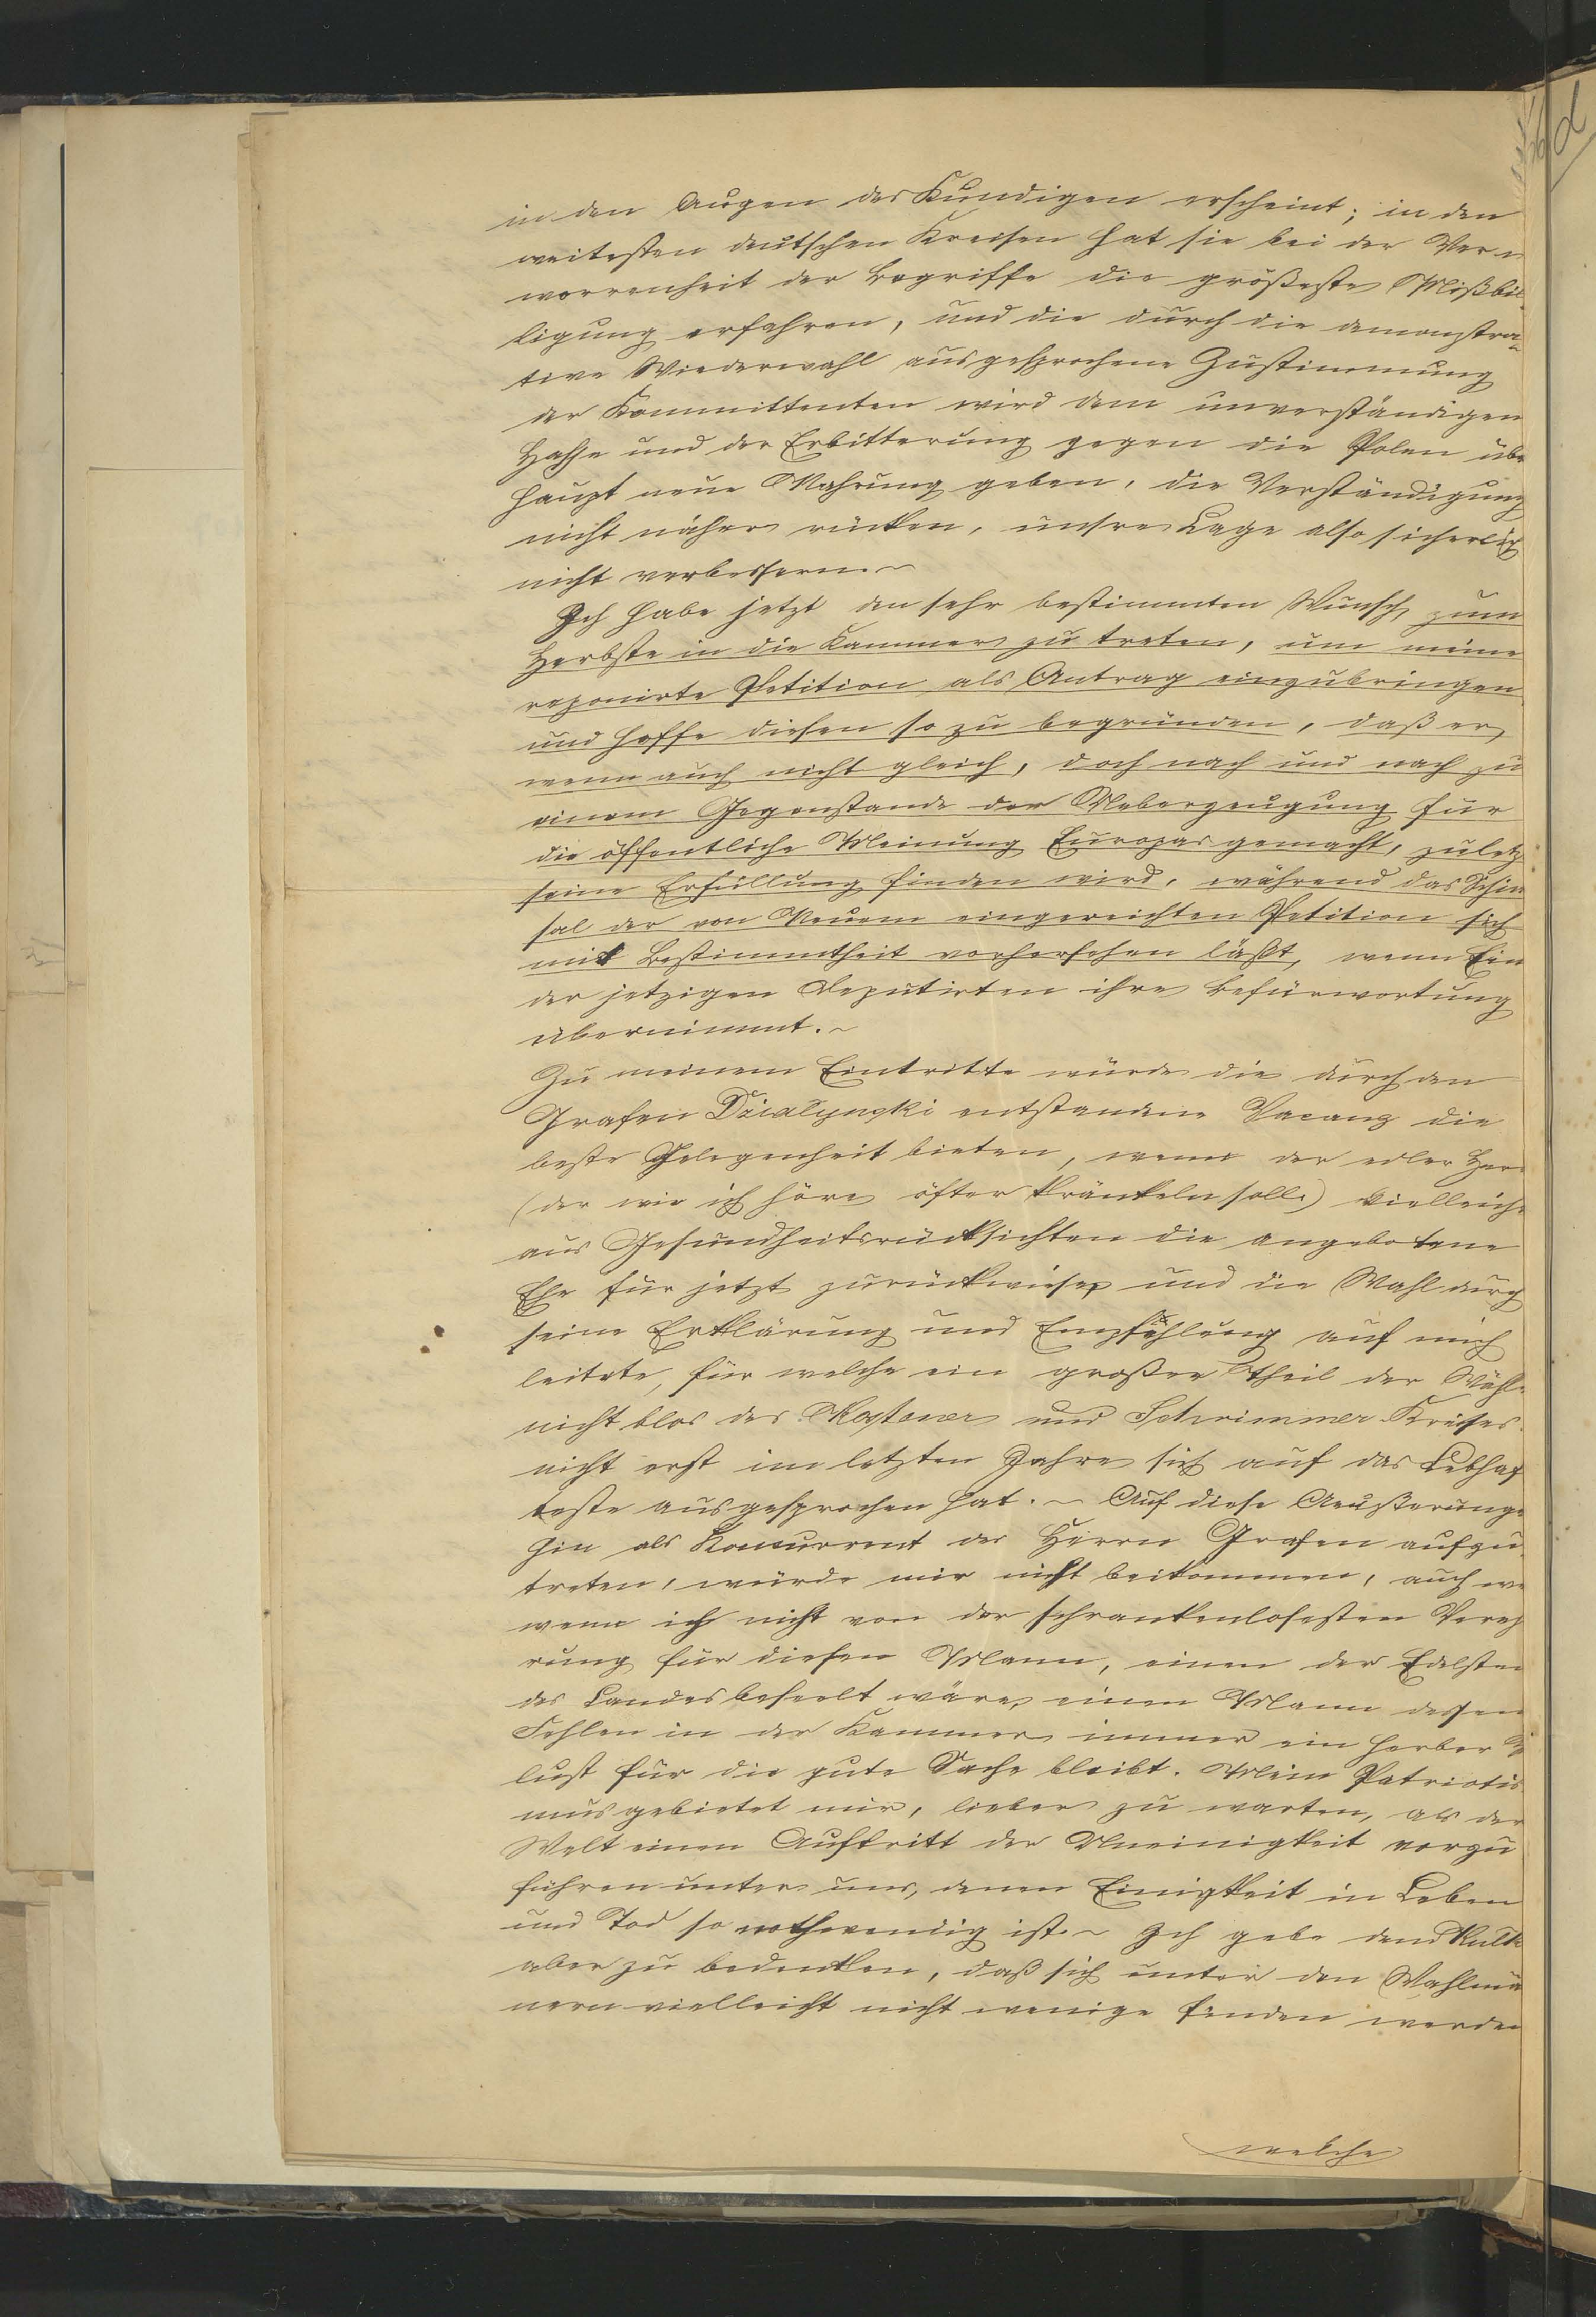 in den Augen des Kundigen erscheint; in den
weitesten deutschen Kreisen hat sie bei der Ver-
worrenheit der Begriffe die größeste Mißbil-
ligung erfahren, und die durch die demonstra-
tive Wiederwahl ausgesprochene Zustimmung
der Kommittenten wird dem unverständigen
Hasse und der Erbitterung gegen die Polen über
haupt neue Nahrung geben, die Verständigung
nicht näher rücken, unsre Lage also sicherlich
nicht verbessern.~
Ich habe jetzt den sehr bestimmten Wunsch, zum
Herbste in die Kammer zu treten, um meine
reponirte Petition als Antrag einzubringen
und hoffe diesen so zu begründen, daß er,
wenn auch nicht gleich, doch nach und nach zu
einem Gegenstande der Ueberzeugung für
die öffentliche Meinung Europas gemacht, zuletzt
seine Erfüllung finden wird, während das Schick
sal der von Neuem eingereichten Petition sich
mit Bestimmtheit vorhersehen läßt, wenn Ein
der jetzigen Deputirten ihre Befürwortung
übernimmt.~
Zu meinem Eintritte würde die durch den
Grafen Działyński entstandene Vacanz die
beste Gelegenheit bieten, wenn der edler Herr
(der wie ich höre öfter kränkeln soll.) vielleicht
aus Gesundheitsrücksichten die angebotene
Ehe für jetzt zurückwiese und die Wahl durch
seine Erklärung und Empfehlung auf mich
leitete, für welche ein großer Theil der Wähler
nicht blos des Kostener und Schrimmer Kreises
nicht erst im letzten Jahre sich auf das Lebhaf
teste ausgesprochen hat.~ Auf diese Aeußerungen
hin als Koncurrent des Herrn Grafen aufzu-
treten, würde mir nicht beikommen, auch we
wenn ich nicht von der schrankenlosesten Vereh
rung für diesen Mann, einen der Edelsten
des Landes beseelt wäre, einen Mann dessen
Fehlen in der Kammer immer ein herber Ver
lust für die gute Sache bleibt. Mein Patriotis
mus gebietet mir, lieber zu warten, als der
Welt einen Auftritt der Uneinigkeit vorzu
führen unter uns, denen Einigkeit in Leben
und Tod so nothwendig ist.~ Ich gebe dem
aber zu bedenken, daß sich unter den Wahlmä
nern vielleicht nicht wenige finden werden
welche